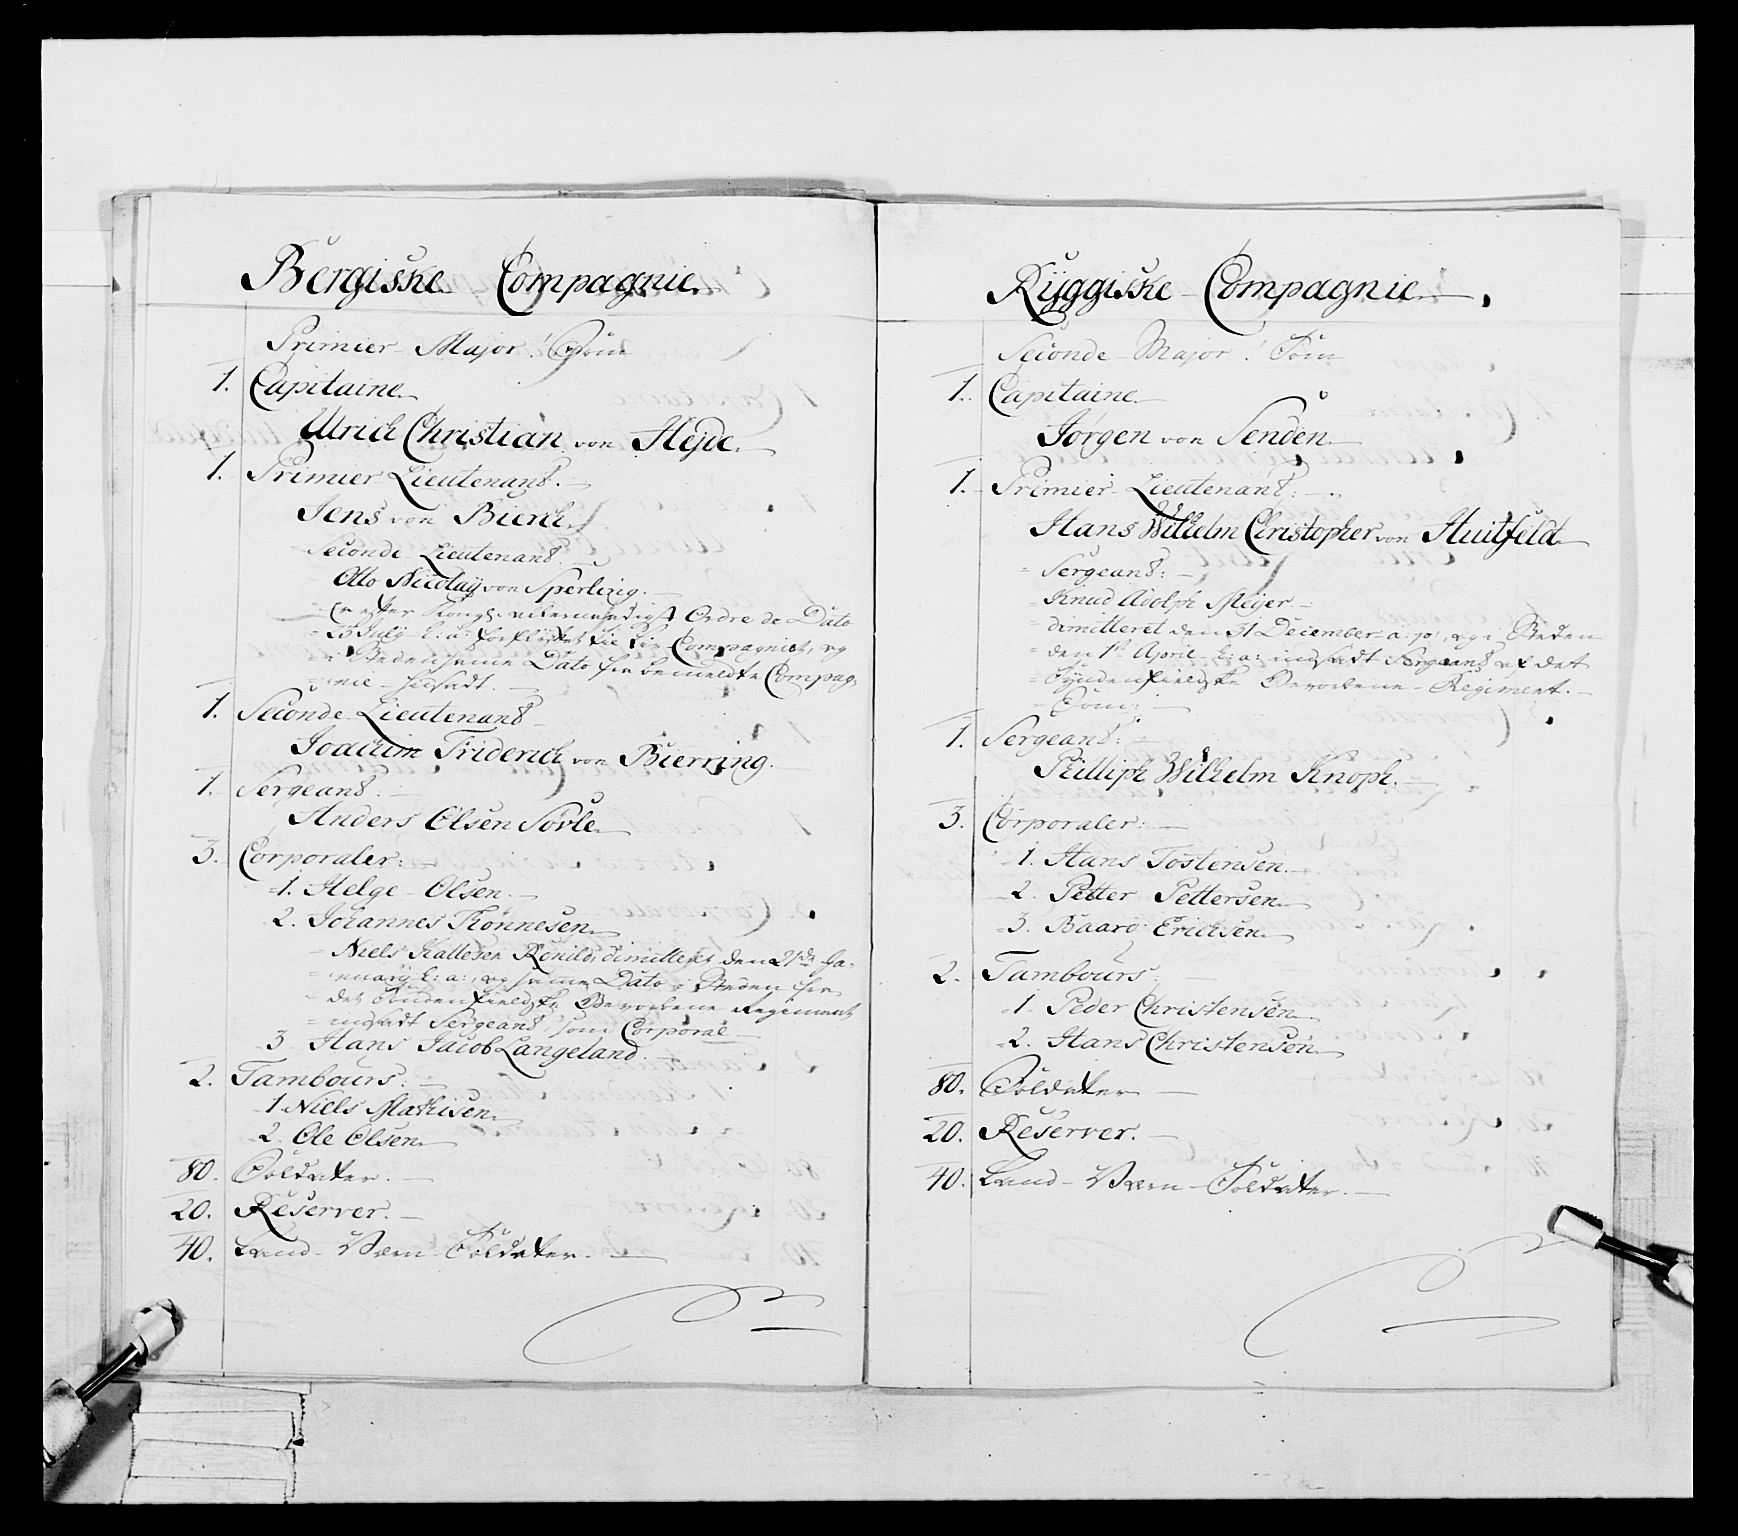 Bergiske Compagnie.
Primier Major
1. Capitaine.
Ulrich Christian von Hejde.
1. Primier Lieutenant.
Jens von Bierch.
Seconde Lieutenant.
Otto Nicolaÿ von Sperling.
er efter Kongl. allernaadigst Ordre de Dato
25 Julÿ h: a: forflÿttet til Compagniet, og
i Steden samme Dato her bemeldte Compag-
nie hersadt.
1. Seconde Lieutenant
Joachim Friderich von Bierring.
1. Sergeant.
Anders Olsen Sovle.
3. Corporaler:
1. Helge Olsen.
2. Johannes Thønnesen.
Niels Kallesen Ronild, dimitteret den 21de Ja-
nuarÿ h: a:, og samme Dato i Steden fra
det Søndenfieldske Gevorbene Regiment
indsadt Sergeant, som Corporal
3. Hans Jacob Langeland.
2. Tambours.
1. Niels Mathisen.
2. Ole Olsen.
80. Soldater.
20. Reserver.
40. Land-Værn-Soldater.
Rÿggiske Compagnie.
Seconde Major
1. Capitaine.
Jørgen von Senden.
1. Primier Lieutenant:
Hans Wilhelm Christopher von Huitfeldt.
Sergeant:
Knud Adolph Meÿer.
dimitteret den 31 December a: p:, og i Steden
den 1ste April h: a: indsadt Sergeant af det
Søndenfieldske Gevorbene Regiment.
1. Sergeant:
Philliph Wilhelm Knoph.
3. Corporaler:
1. Hans Tostensen.
2. Petter Pettersen.
3. Baard Erichsen.
2. Tambours
1. Peder Christensen.
2. Hans Christensen.
80. Soldater
20. Reserver.
40. Land-Værn-Soldater.